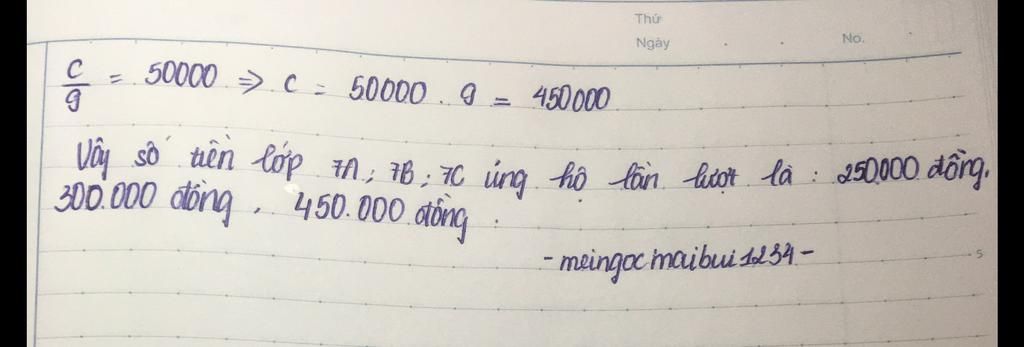 Thứ
Ngày . . No.
c/9 = 50000 => c = 50000 . 9 = 450000
Vậy số tiền lớp 7A; 7B; 7C ủng hộ lần lượt là : 250.000 đồng,
300.000 đồng, 450.000 đồng.
-meingocmaibui1234-
5